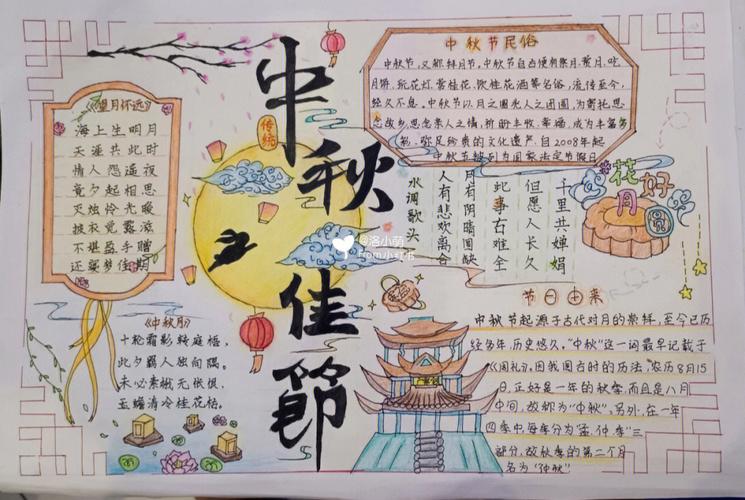 中秋佳節
传统
《望月怀远》
海上生明月
天涯共此时
情人怨遥夜
竟夕起相思
灭烛怜光暖
披衣觉露滋
不堪盈手赠
还寝梦佳期
《中秋月》
十轮霜影转庭梧,
此夕羁人独向隅。
未必素娥无怅恨,
玉蟾清冷桂花孤。
中秋节民俗
中秋节,又称拜月节,中秋节自古便有祭月、赏月、吃
月饼、玩花灯、赏桂花、饮桂花酒等民俗,流传至今,
经久不息。中秋节以月之圆兆人之团圆,为寄托思
念故乡,思念亲人之情,祈盼丰收、幸福,成为丰富多
彩、弥足珍贵的文化遗产,自2008年起
中秋节被列为国家法定节假日
水调歌头
人有悲欢离合
月有阴晴圆缺
此事古难全
但愿人长久
千里共婵娟
花好
月圆
@洛小萌
From小红书
节日由来
中秋节起源于古代对月的崇拜,至今已历
经多年,历史悠久,“中秋”这一词最早记载于
《周礼》,因我国古时的历法,农历8月15
日,正好是一年的秋季,而且是八月
中间,故称为“中秋”。另外,在一年
四季中每季分为“孟,仲,季”三
部分,故秋季的第二个月
名为“仲秋”